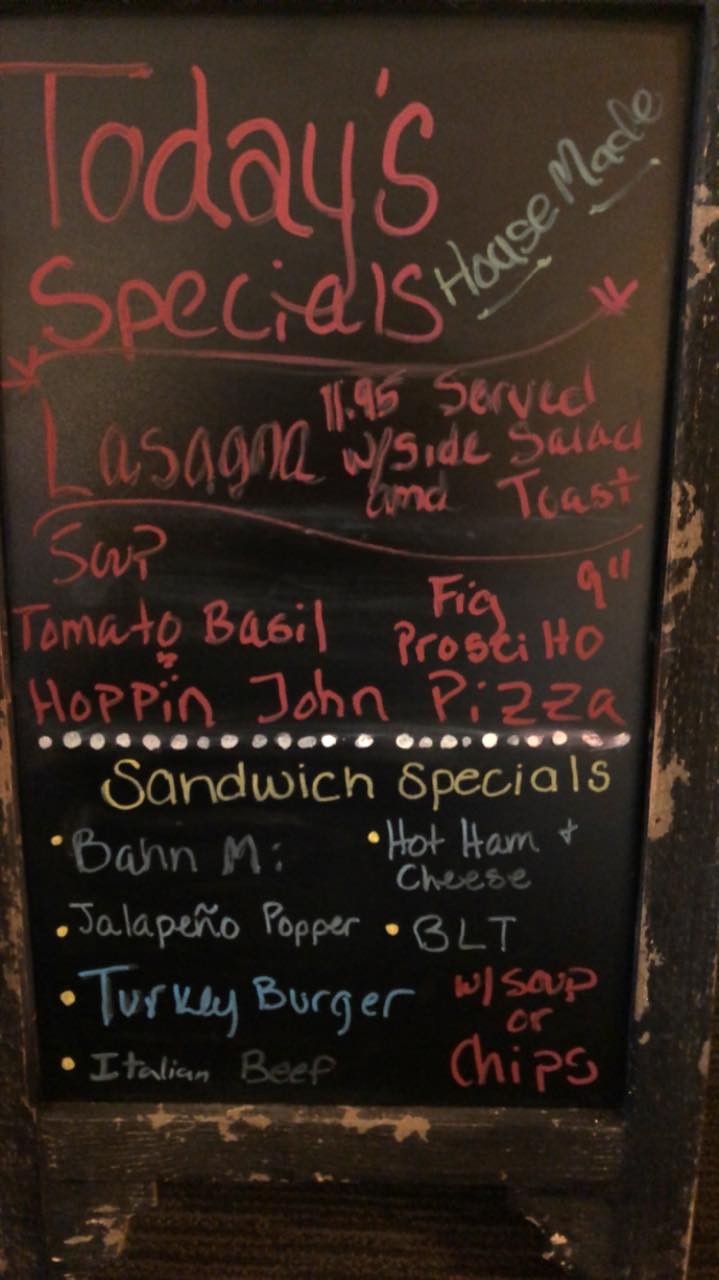 Today's
Specials
House Made
Lasagna
11.95 Served
w/side Salad
and Toast
Soup
Tomato Basil
Hoppin John
Fig 9"
Proscitto
Pizza
Sandwich Specials
• Bahn Mi
• Hot Ham +
Cheese
• Jalapeño Popper
• BLT
• Turkey Burger
• Italian Beef
w/ soup
or
Chips